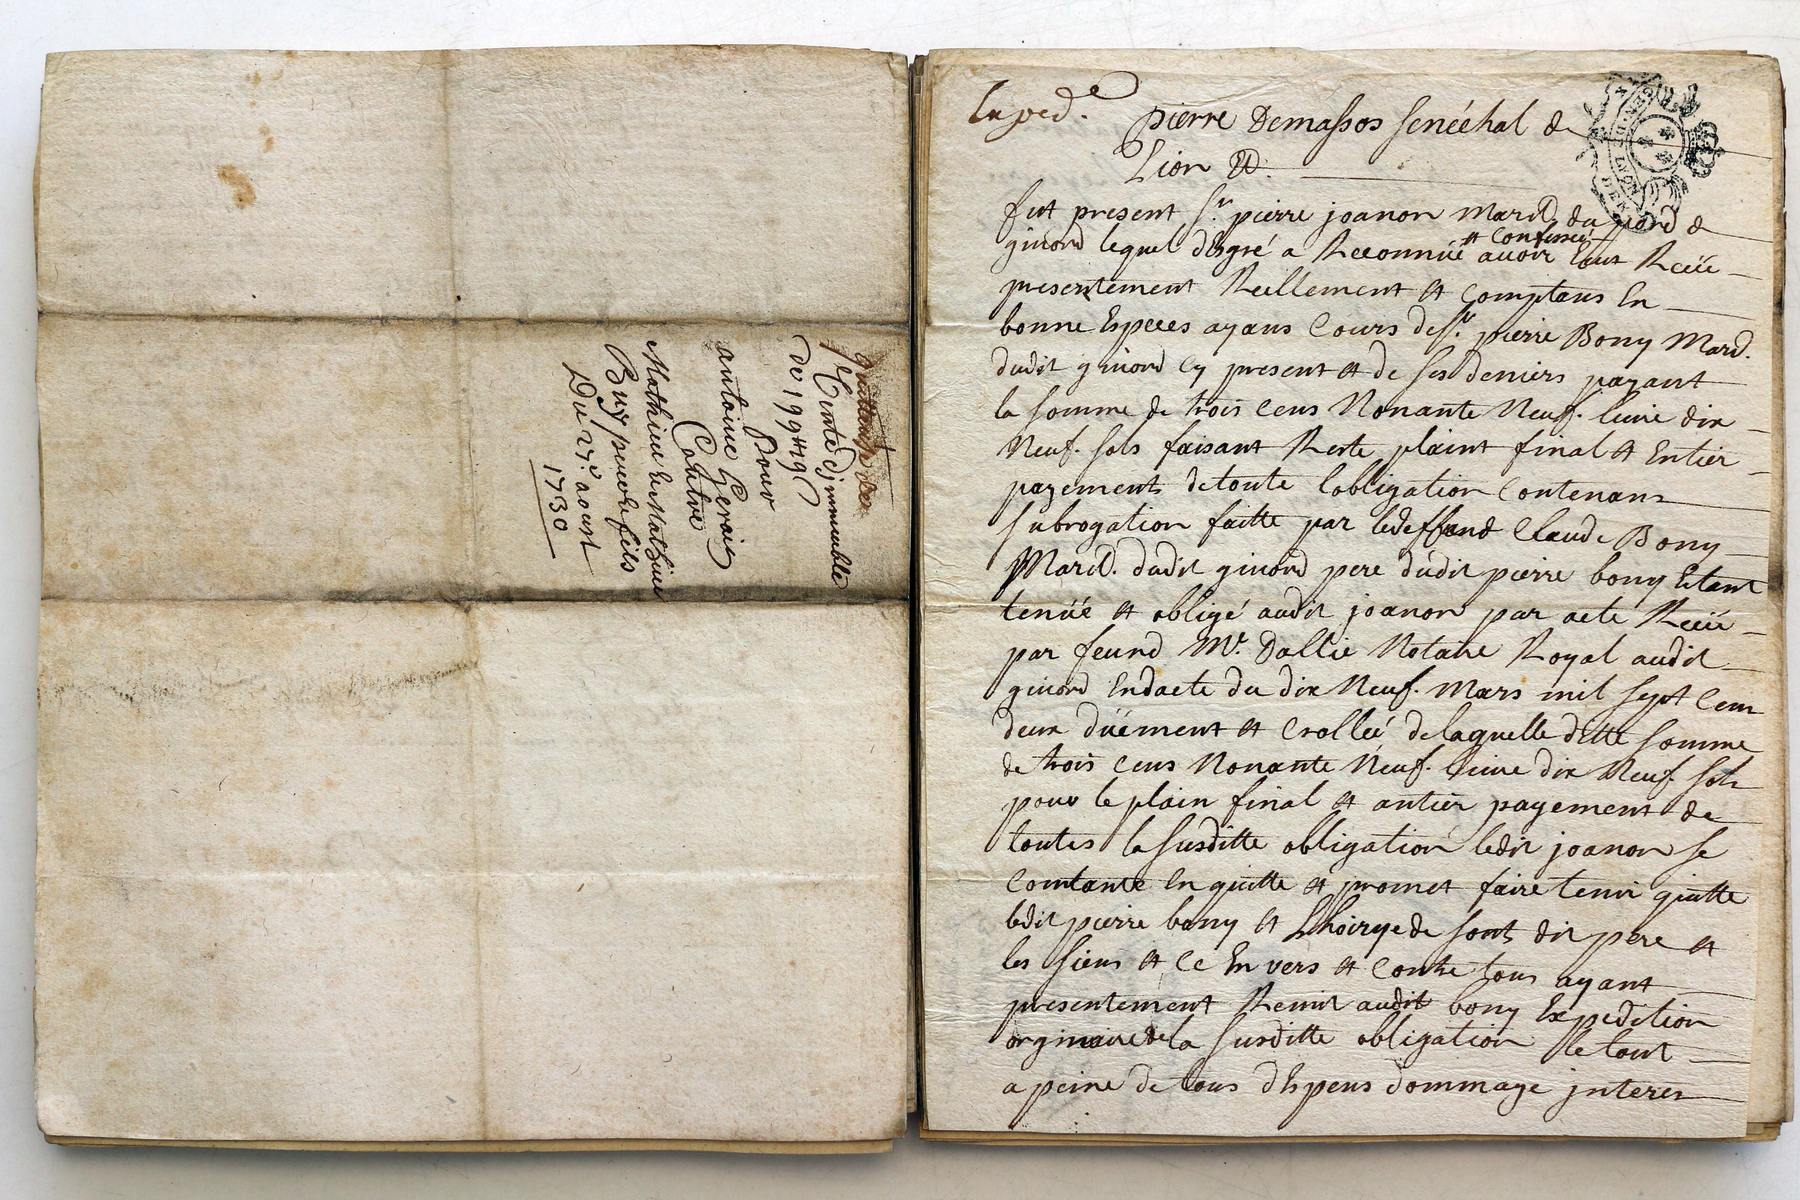 Vente d'jmmeuble
de 199lt 19s
Pour
antoine Gerais
Contre
Mathieu & Mathieu
Buy pere & fils
Du 27e. aoust
1730
Exped.e
pierre Demassos senéchal de
Lion &.
fut present Sr. pierre joanon Mard. du giord de
givord lequel dhgré a Reconnüe et confessé avoir Eut Reçü
presentement Reellement et Comptans En
bonne Especes ayans Cours de Sr. pierre Bony Mard.
dudit givord cy present et de ses deniers payant
la somme de trois cens Nonante Neuf. livre dix
Neuf. sols faisant Reste plaint final et Entier
payements detoute lobligation Contenans
subrogation faitte par ledeffund Claude Bony
Mard. dudit givord pere dudit pierre bony Estant
tenüe et obligé audit joanon par acte Reçü
par feund Mr. Dallie Notaire Royal audit
givord Endacte du dix Neuf. Mars mil sept Cem
deux düement et Crolleé delaquelle ditte somme
de trois cens Nonante Neuf. livre dix Neuf. sols
pour le plain final et antier payement de
toutes la susditte obligation ledit joanon se
Contante En quitte et promet faire tenir quitte
ledit pierre bony et Lhoirye de sont dit pere et
les siens et ce En vers et contre tous ayant
presentement Remit audit bony Expedition
orginaire de la susditte obligation le tout
a peine de tous dEspens dommage jnteres